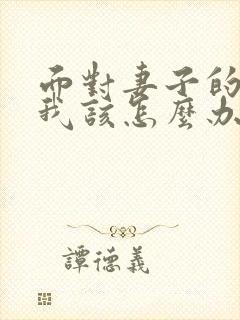 而對妻子的
我該怎麼办
譚德義